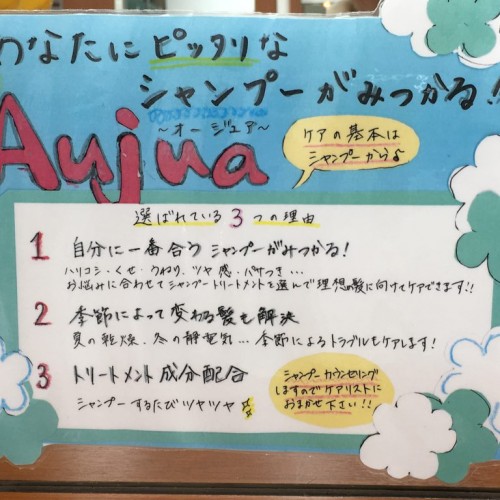 あなたにピッタリな
シャンプーがみつかる!
Aujua
~オージュア~
ケアの基本は
シャンプーから♪
選ばれている3つの理由
1 自分に一番合うシャンプーがみつかる!
ハリコシ・くせ・うねり、ツヤ感・パサつき…
お悩みに合わせてシャンプートリートメントを選んで理想の髪に向けてケアできます!!
2 季節によって変わる髪も解決
夏の乾燥、冬の静電気…季節によるトラブルもケアします!
3 トリートメント成分配合
シャンプーするたびツヤツヤ
シャンプーカウンセリング
しますのでケアリストに
おまかせ下さい!!